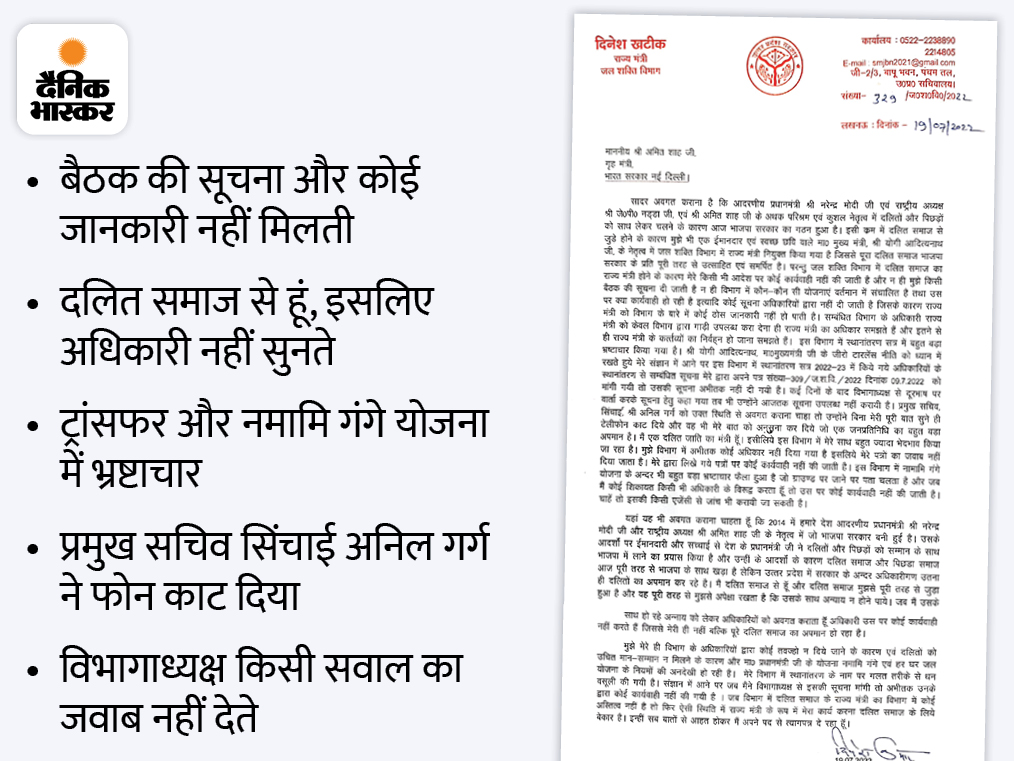 दैनिक
भास्कर
• बैठक की सूचना और कोई
जानकारी नहीं मिलती
• दलित समाज से हूं, इसलिए
अधिकारी नहीं सुनते
• ट्रांसफर और नमामि गंगे योजना
में भ्रष्टाचार
• प्रमुख सचिव सिंचाई अनिल गर्ग
ने फोन काट दिया
• विभागाध्यक्ष किसी सवाल का
जवाब नहीं देते
दिनेश खटीक
राज्य मंत्री
जल शक्ति विभाग
कार्यालय : 0522-2238890
2214805
E-mail : smjbn2021@gmail.com
जी-2/3, बापू भवन, पंचम तल,
उ0प्र0 सचिवालय।
संख्या- 329 /ज0श0वि0/2022
लखनऊ : दिनांक - 19/07/2022
माननीय श्री अमित शाह जी,
गृह मंत्री,
भारत सरकार नई दिल्ली।
सादर अवगत कराना है कि आदरणीय प्रधानमंत्री श्री नरेन्द्र मोदी जी एवं राष्ट्रीय अध्यक्ष
श्री जे0पी0 नड्डा जी, एवं श्री अमित शाह जी के अथक परिश्रम एवं कुशल नेतृत्व में दलितों और पिछड़ों
को साथ लेकर चलने के कारण आज भाजपा सरकार का गठन हुआ है। इसी क्रम में दलित समाज से
जुड़े होने के कारण मुझे भी एक ईमानदार एवं स्वच्छ छवि वाले मा0 मुख्य मंत्री, श्री योगी आदित्यनाथ
जी, के नेतृत्व मे जल शक्ति विभाग में राज्य मंत्री नियुक्त किया गया है जिससे पूरा दलित समाज भाजपा
सरकार के प्रति पूरी तरह से उत्साहित एवं समर्पित है। परन्तु जल शक्ति विभाग में दलित समाज का
राज्य मंत्री होने के कारण मेरे किसी भी आदेश पर कोई कार्यवाही नहीं की जाती है और न ही मुझे किसी
बैठक की सूचना दी जाती है न ही विभाग में कौन-कौन सी योजनाएं वर्तमान में संचालित है तथा उस
पर क्या कार्यवाही हो रही है इत्यादि कोई सूचना अधिकारियों द्वारा नहीं दी जाती है जिसके कारण राज्य
मंत्री को विभाग के बारे में कोई ठोस जानकारी नहीं हो पाती है। सम्बंधित विभाग के अधिकारी राज्य
मंत्री को केवल विभाग द्वारा गाड़ी उपलब्ध करा देना ही राज्य मंत्री का अधिकार समझते है और इतने से
ही राज्य मंत्री के कर्तव्यों का निर्वहन हो जाना समझते है। इस विभाग में स्थानांतरण सत्र में बहुत बड़ा
भ्रष्टाचार किया गया है। श्री योगी आदित्यनाथ, मा0मुख्यमंत्री जी के जीरो टारलेंस नीति को ध्यान में
रखते हुये मेरे संज्ञान में आने पर इस विभाग में स्थानांतरण सत्र 2022-23 में किये गये अधिकारियों के
स्थानांतरण से सम्बंधित सूचना मेरे द्वारा अपने पत्र संख्या-309/ज.श.वि./2022 दिनांक 09.7.2022 को
मांगी गयी तो उसकी सूचना अभीतक नहीं दी गयी है। कई दिनों के बाद विभागाध्यक्ष से दूरभाष पर
वार्ता करके सूचना हेतु कहा गया तब भी उन्होंने आजतक सूचना उपलब्ध नहीं करायी है। प्रमुख सचिव,
सिंचाई, श्री अनिल गर्ग को उक्त स्थिति से अवगत कराना चाहा तो उन्होंने बिना मेरी पूरी बात सुने ही
टेलीफोन काट दिये और वह भी मेरे बात को अनसुना कर दिये जो एक जनप्रतिनिधि का बहुत बड़ा
अपमान है। मैं एक दलित जाति का मंत्री हूँ। इसीलिये इस विभाग में मेरे साथ बहुत ज्यादा भेदभाव किया
जा रहा है। मुझे विभाग में अभीतक कोई अधिकार नहीं दिया गया है इसलिये मेरे पत्रों का जवाब नहीं
दिया जाता है। मेरे द्वारा लिखे गये पत्रों पर कोई कार्यवाही नहीं की जाती है। इस विभाग में नामामि गंगे
योजना के अन्दर भी बहुत बड़ा भ्रष्टाचार फैला हुआ है जो ग्राउण्ड पर जाने पर पता चलता है और जब
मैं कोई शिकायत किसी भी अधिकारी के विरूद्ध करता हूँ तो उस पर कोई कार्यवाही नहीं की जाती है।
चाहें तो इसकी किसी एजेंसी से जांच भी करायी जा सकती है।
यहां यह भी अवगत कराना चाहता हूँ कि 2014 में हमारे देश आदरणीय प्रधानमंत्री श्री नरेन्द्र
मोदी जी और राष्ट्रीय अध्यक्ष श्री अमित शाह जी के नेतृत्व में जो भाजपा सरकार बनी हुई है। उसके
आदर्शो पर ईमानदारी और सच्चाई से देश के प्रधानमंत्री जी ने दलितों और पिछड़ों को सम्मान के साथ
भाजपा में लाने का प्रयास किया है और उन्हीं के आदर्शों के कारण दलित समाज और पिछडा समाज
आज पूरी तरह से भाजपा के साथ खड़ा है लेकिन उत्तर प्रदेश में सरकार के अन्दर अधिकारीगण उतना
ही दलितों का अपमान कर रहे है। मैं दलित समाज से हूँ और दलित समाज मुझसे पूरी तरह से जुड़ा
हुआ है और वह पूरी तरह से मुझसे अपेक्षा रखता है कि उसके साथ अन्याय न होने पाये। जब मैं उसके
साथ हो रहे अन्नाय को लेकर अधिकारियों को अवगत कराता हूँ अधिकारी उस पर कोई कार्यवाही
नहीं करते हैं जिससे मेरी ही नहीं बल्कि पूरे दलित समाज का अपमान हो रहा है।
मुझे मेरे ही विभाग के अधिकारियों द्वारा कोई तवज्जो न दिये जाने के कारण एवं दलितों को
उचित मान-सम्मान न मिलने के कारण और मा0 प्रधानमंत्री जी के योजना नमामि गंगे एवं हर घर जल
योजना के नियमों की अनदेखी हो रही है। मेरे विभाग में स्थानांतरण के नाम पर गलत तरीके से धन
वसूली की गयी है। संज्ञान में आने पर जब मैने विभागाध्यक्ष से इसकी सूचना मांगी तो अभीतक उनके
द्वारा कोई कार्यवाही नहीं की गयी है । जब विभाग में दलित समाज के राज्य मंत्री का विभाग में कोई
अस्तित्व नही है तो फिर ऐसी स्थिति में राज्य मंत्री के रूप में मेरा कार्य करना दलित समाज के लिये
बेकार है। इन्हीं सब बातों से आहत होकर मैं अपने पद से त्यागपत्र दे रहा हूँ।
19.07.2022